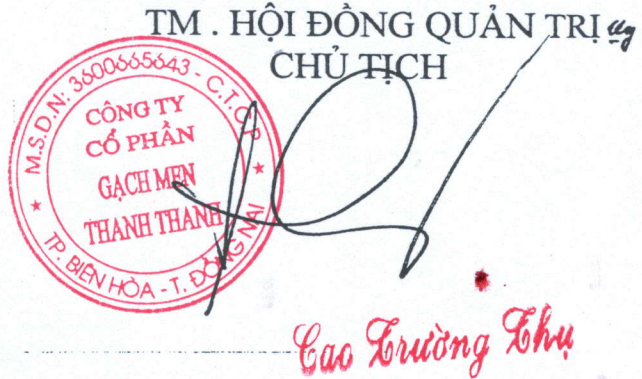 TM . HỘI ĐỒNG QUẢN TRỊ
CHỦ TỊCH
M.S.D.N: 3600665643 - C.T.C.P
CÔNG TY
CỔ PHẦN
GẠCH MEN
THANH THANH
TP. BIÊN HÒA - T. ĐỒNG NAI
Cao Trường Thụ